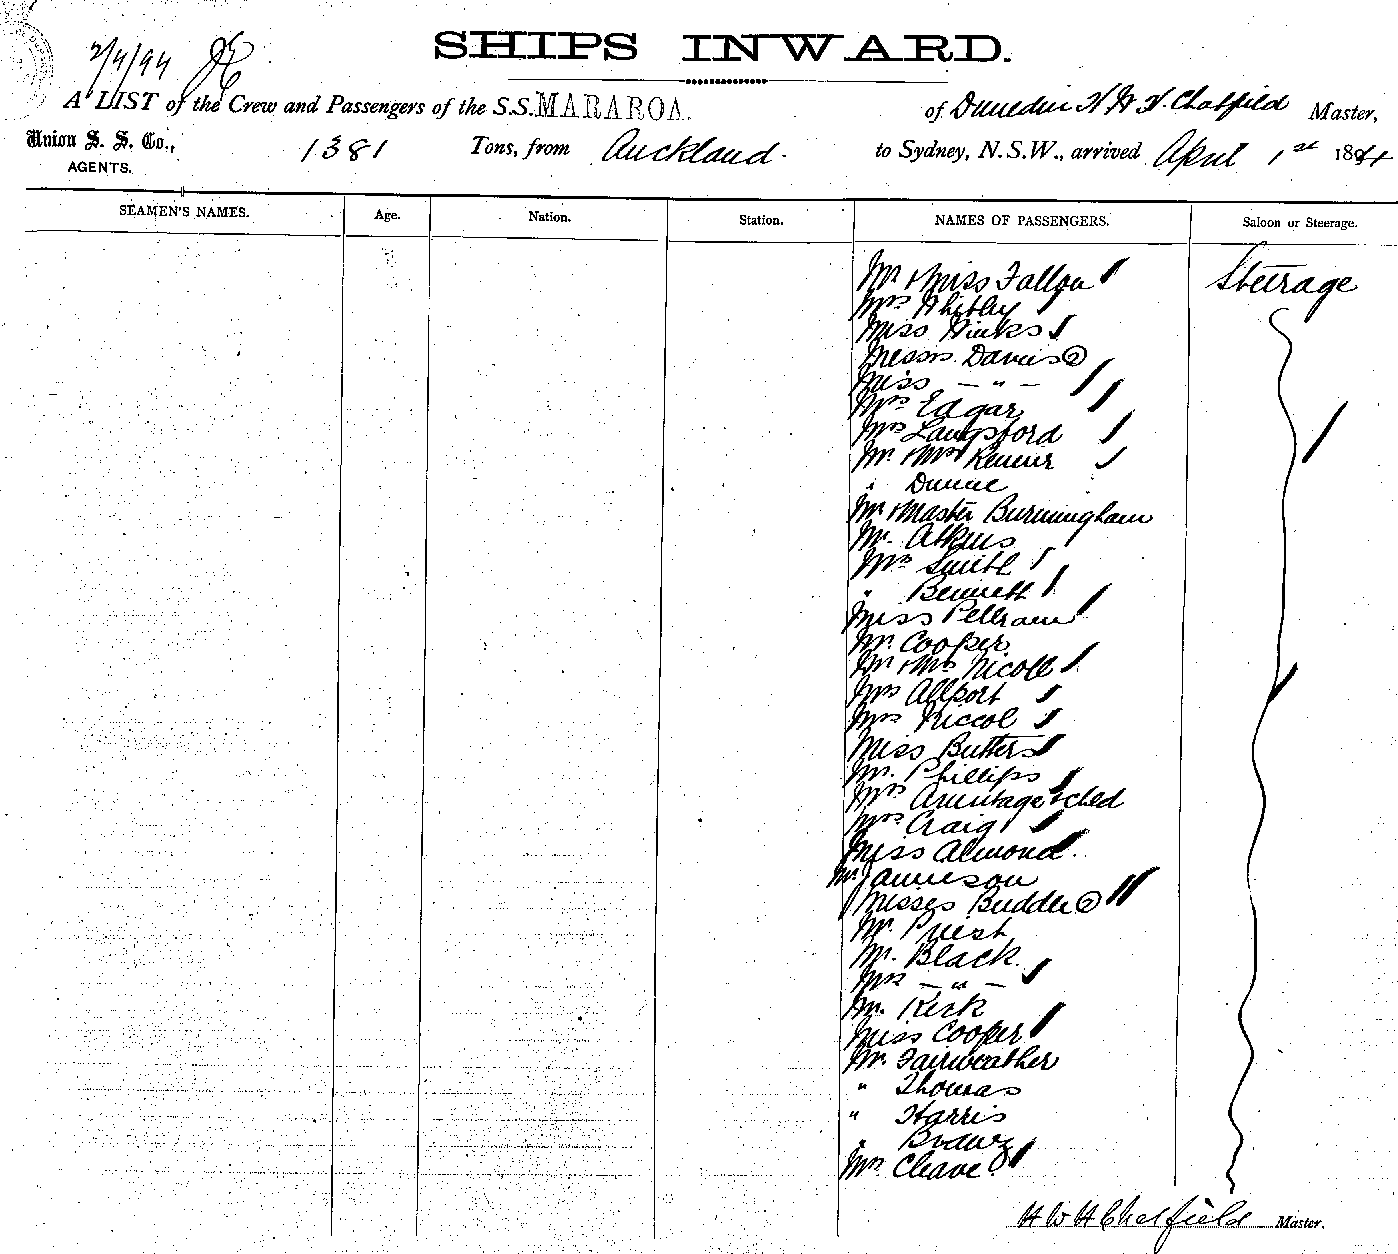 SHIPS INWARD.
2/4/94
A LIST of the Crew and Passengers of the S.S. MARAROA. of Dunedin H W H Chatfield Master,
Union S. S. Co., 1381 Tons, from Auckland. to Sydney, N.S.W., arrived April 1st 1894
AGENTS.
SEAMEN'S NAMES. Age. Nation. Station. NAMES OF PASSENGERS. Saloon or Steerage.
Mr & Miss Fallon Steerage
Mrs Whitby
Miss Hinks
Messrs. Davies 2
Miss — " —
Mrs Edgar
Mrs Langsford
Mr. & Mrs
" Dunne
Mr & Master Burmingham
Mr. Atkins
Mrs Smith
" Bennett
Miss Peltram
Mr. Cooper
Mr & Mrs Nicoll
Mrs Allport
Mrs Niccol
Miss Butters
Mr. Phillips
Mrs Armitage & chld
Mrs Craig
Miss Almond.
Mr Jamieson
Misses Budder 2
Mr. Priest
Mr. Black.
Mrs — " —
Mr. Kirk
Miss Cooper
Mr. Fairweather
" Thomas
" Harris
"
Mrs Cleave
H W H Chatfield Master.